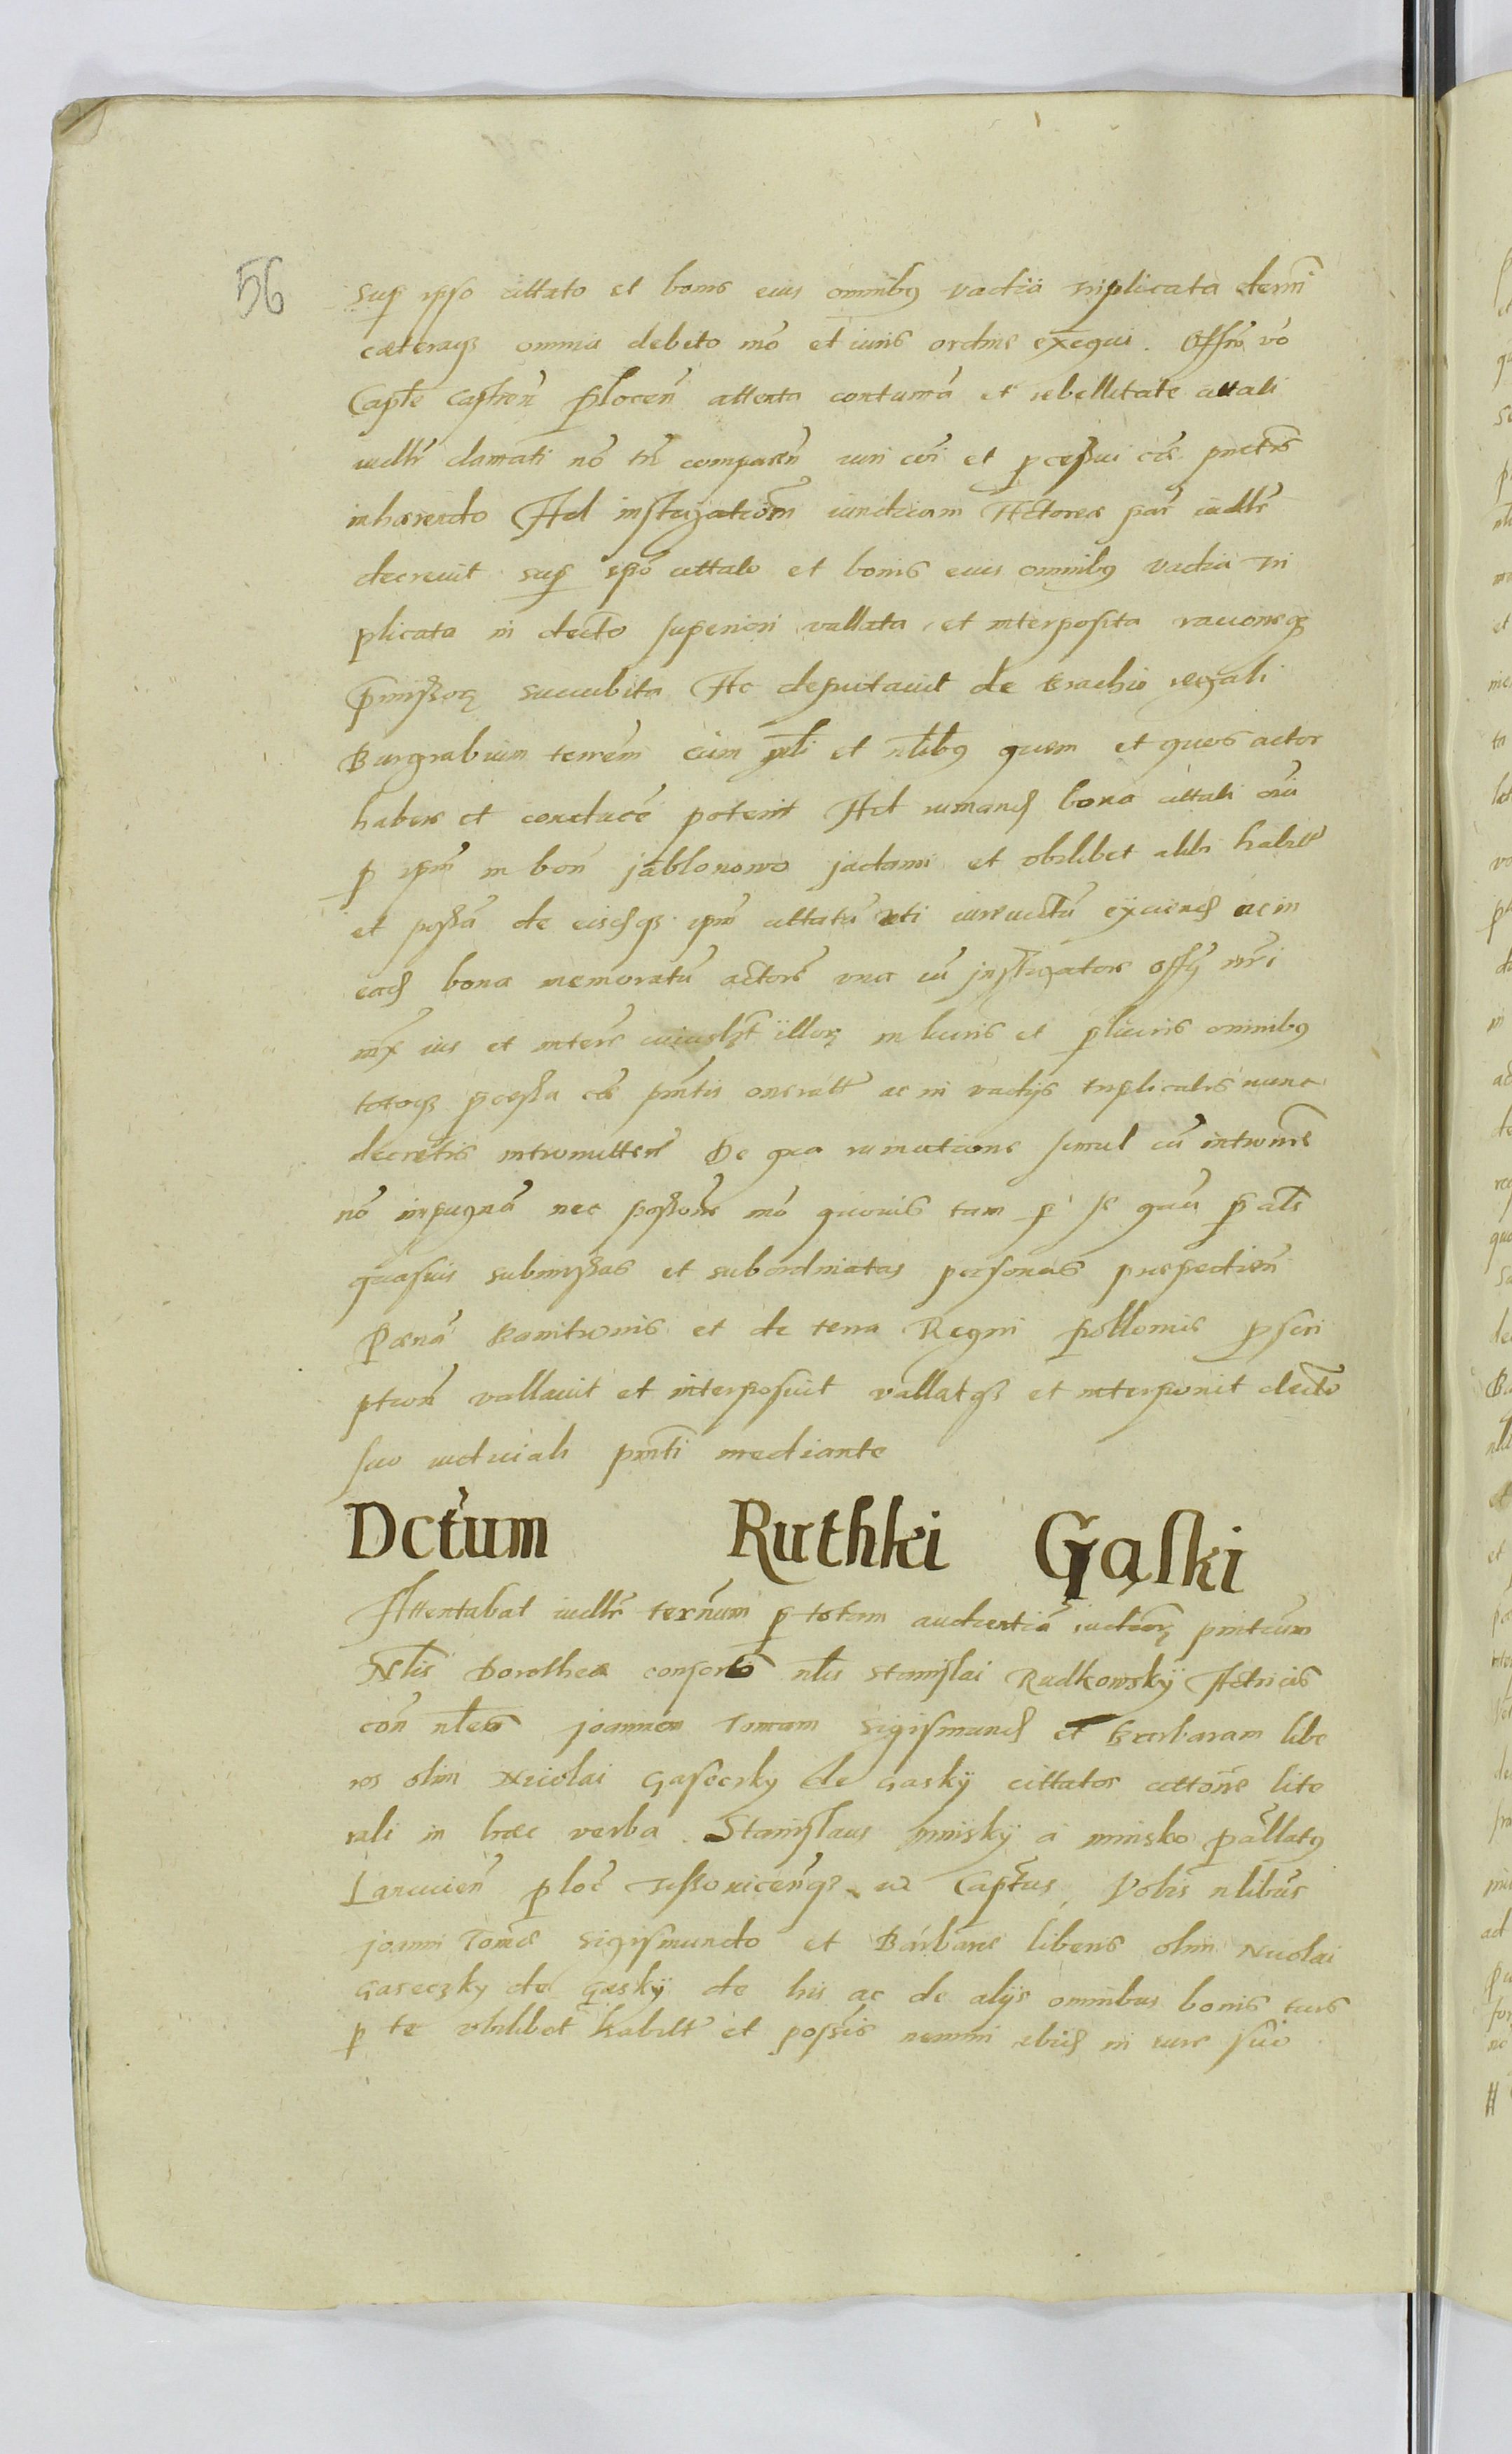 56
sup ipso cittato et bonis eius omnibus vadia triplicata decerni
caeteraqz omnia debito mo et iuris ordine exequi. Offm vo
Capte Castren Plocen attenta contuma et rebellitate cittati
iudlr clamati no tn comparen iuri coi et pcessui cae pntis
inhaerendo Ad instigationem iuridicam Actoreae par iudlr
decrevit sup ipso cittato et bonis eius omnibus vadia tri
plicata in decto superiori vallata et interposita racioneqz
pmissor succubita Ac deputavit de Brachio regali
Burgrabium terrem cum mli et nlibus quem et quos actor
habere et conducere poterit Ad rumand bona cittati oia
p ipm in bon Jablonowo jactami et vbilibet alibi habitt
et possa de eisdqz ipm cittatu uti iurevictu eyciend ac in
ead bona memoratu actore vna cu instigatore offy nri
mx ius et interes cuiuslt illor in lucris et plucris omnibus
totoqz pcessu cae pntis oneratt ac in vadys triplicatis nunc
decretis intromitten De qua rumatione simul cu intromis
no impugna nec possone mo quovis tam p se qua p alis
quasuis submissas et subordinatas personas prospedien
Paena Banitionis et de terra Regni Polloniae pscri
ption vallavit et interposuit vallatqz et interponit decto
suo iudiciali pnti mediante
Dctum Ruthki Gąski
Attentabat iudlr terminum p totam audientia iudicior pntium
Nlis Dorothea consortis nlis Stanislai Rudkowskÿ Actricis
con nleis Joannem Tomam Sigismund et Barbaram libe
ros olim Nicolai Gaseczky de Gaskÿ cittatos cittone lite
rali in haec verba Stanislaus minskÿ a minsko Pallatus
Lancicien ploc capteus Vobis nlibus
Joanni Tomae Sigismundo et Barbarae liberis olim Nicolai
Gaseczky de Gaskÿ de his ac de alÿs omnibus bonis tuis
p te vbilibet habitt et possis nemini ibid in iure suo